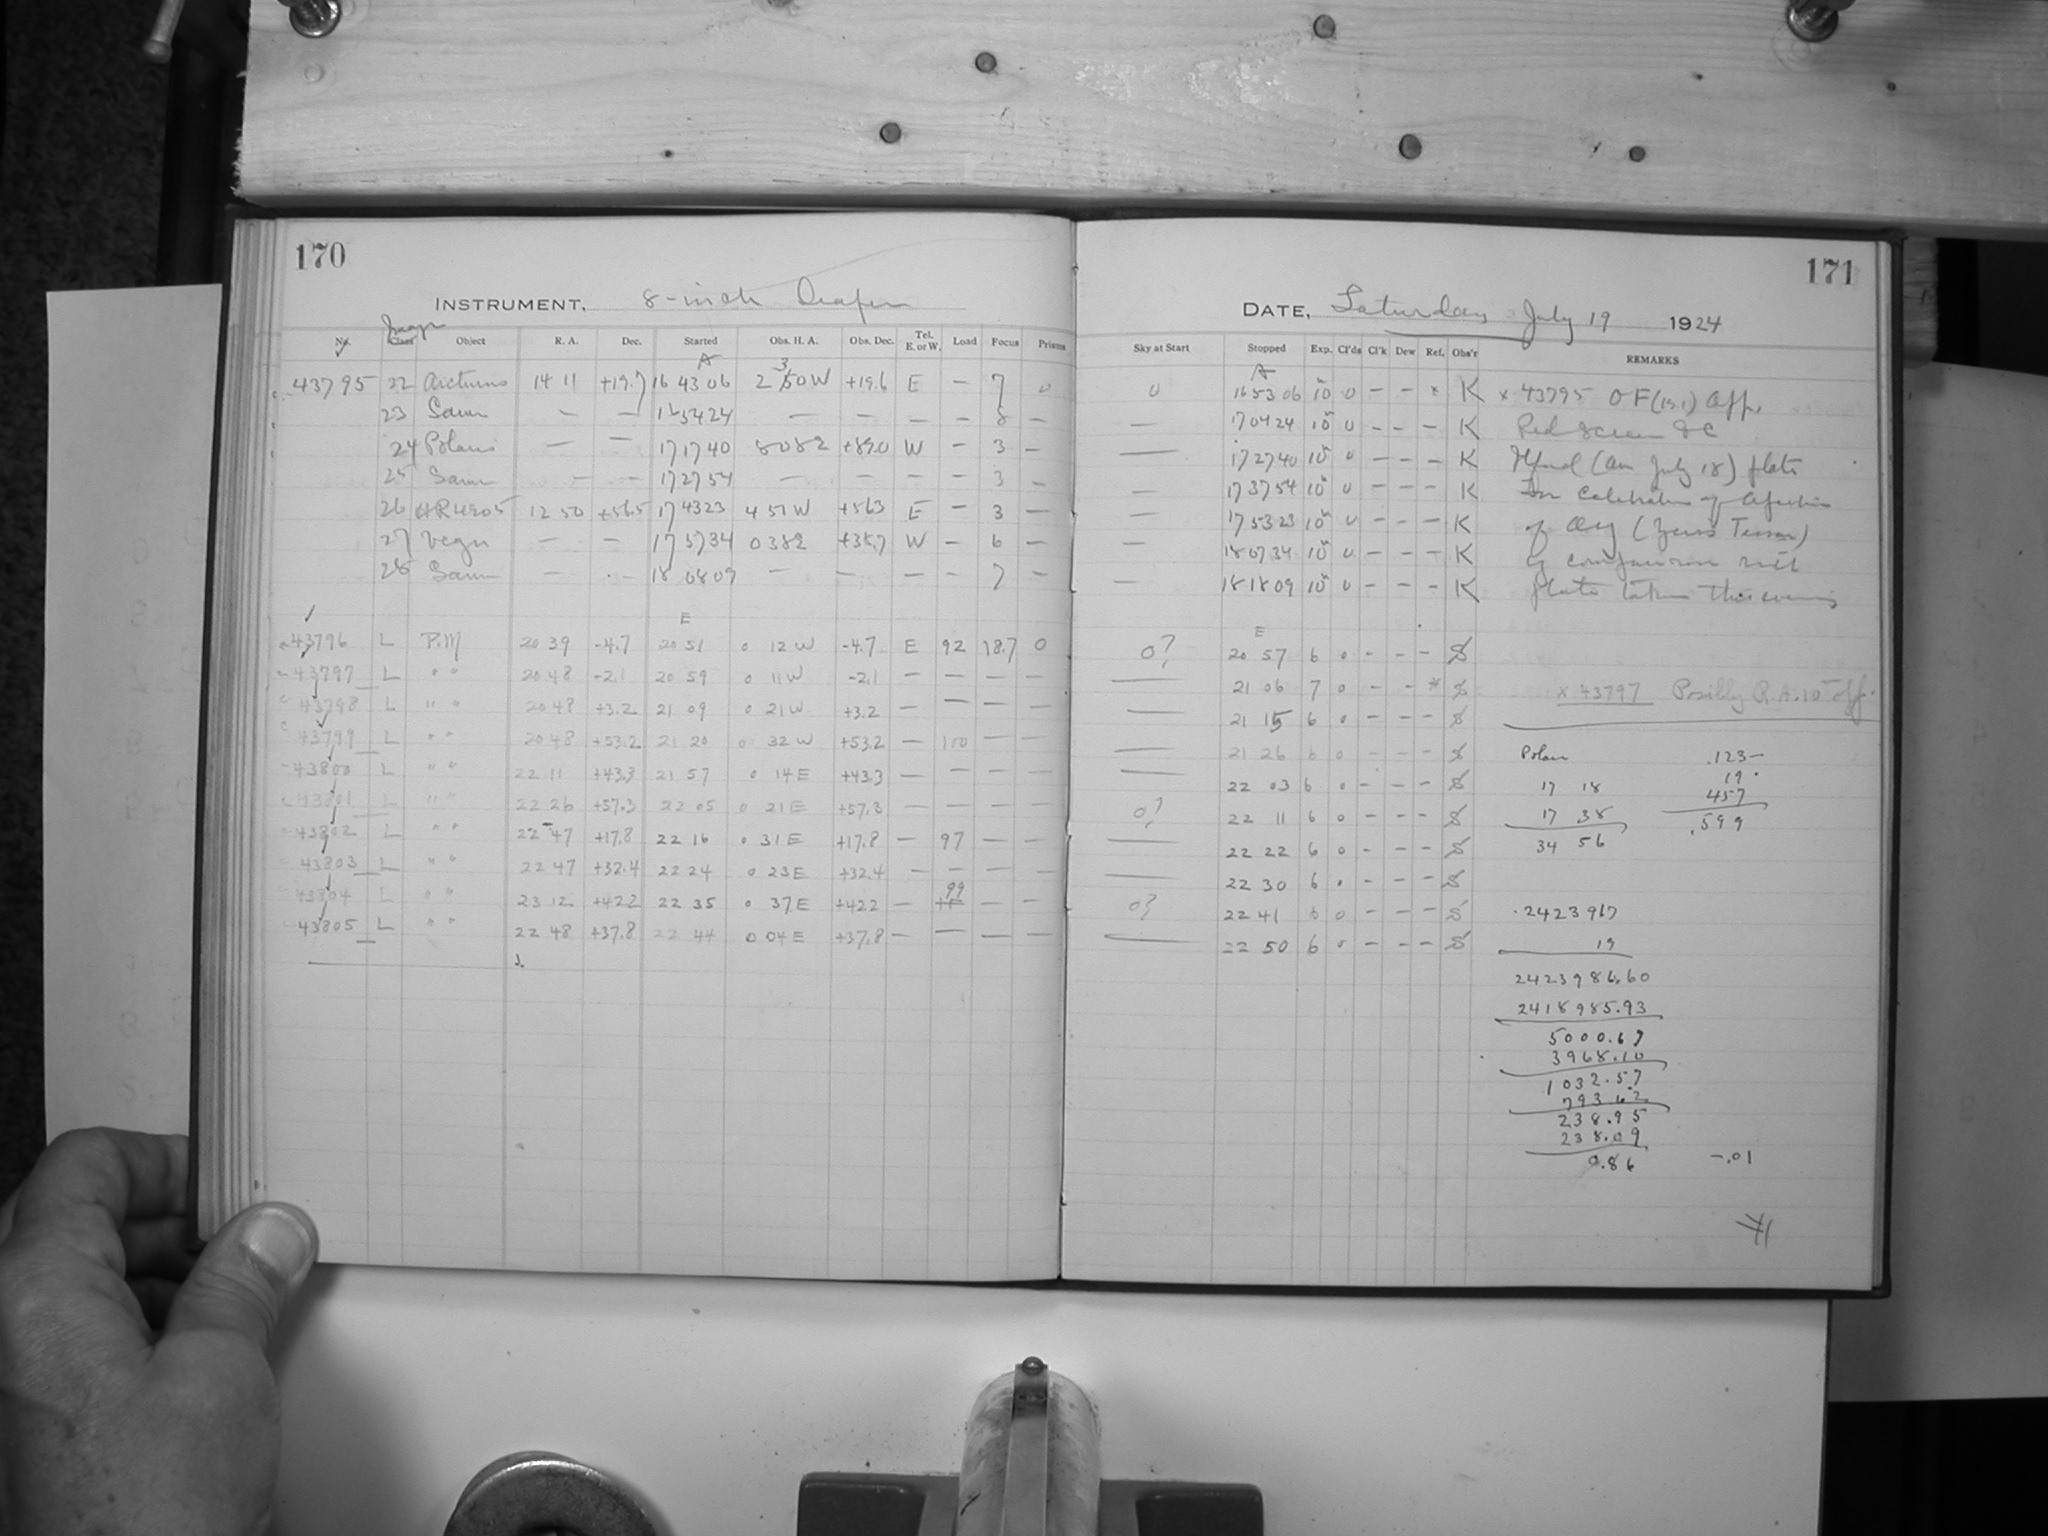 170
INSTRUMENT, 8-inch Draper
Image
No. Class Object R. A. Dec. Started Obs. H. A. Obs. Dec. Tel. E. or W. Load Focus Prisms
A
43795 22 Arcturus 14 11 +19.7 16 43 06 2 30 W +19.6 E — 7 0
23 Same — — 165424 — — — — 8 —
24 Polaris — — 171740 8082 +89.0 W — 3 —
25 Same — — 172754 — — — — 3 —
26 HR4905 12 50 +56.5 17 4323 4 51 W +563 E — 3 —
27 Vega — — 175734 0382 +38.7 W — 6 —
28 Same — — 18 0809 — — — — 7 —
E
43796 L P.M 20 39 -4.7 20 51 0 12 W -4.7 E 92 18.7 0
43797 L " " 20 48 -2.1 20 59 0 11 W -2.1 — — — —
43798 L " " 20 48 +3.2 21 09 0 21 W +3.2 — — — —
43799 L " " 20 48 +53.2 21 20 0 32 W +53.2 — 100 — —
43800 L " " 22 11 +43.3 21 57 0 14 E +43.3 — — — —
43801 L " " 22 26 +57.3 22 05 0 21 E +57.3 — — — —
43802 L " " 22 47 +17.8 22 16 0 31 E +17.8 — 97 — —
43803 L " " 22 47 +32.4 22 24 0 23 E +32.4 — — — —
43804 L " " 23 12 +42.2 22 35 0 37 E +42.2 — 99 — —
43805 L " " 22 48 +37.8 22 44 0 04 E +37.8 — — — —
171
DATE, Saturday July 19 1924
Sky at Start Stopped Exp. Cl'ds Cl'k Dew Ref. Obs'r REMARKS
A
0 165306 10 0 — — x K x 43795 OF(13.1) Aff.
— 170424 10 0 — — — K Red Screen & C
— 172740 10 0 — — — K Ilford (an July 18) plate
— 173754 10 0 — — — K for calibration of
— 175323 10 0 — — — K of (Zeiss Tessar)
— 180734 10 0 — — — K by comparison with
— 181809 10 0 — — — K plate taken this evening
E
0? 20 57 6 0 — — — S
— 21 06 7 0 — — * S x 43797 Possibly R.A. 10 off.
— 21 15 6 0 — — — S
— 21 26 6 0 — — — S
— 22 03 6 0 — — — S
0? 22 11 6 0 — — — S
— 22 22 6 0 — — — S
— 22 30 6 0 — — — S
0? 22 41 6 0 — — — S
— 22 50 6 0 — — — S
Polaris .123—
17 18 19
17 38 457
34 56 .599
2423967
19
2423986.60
2418985.93
5000.67
3968.10
1032.57
793.62
238.95
238.09
0.86 -.01